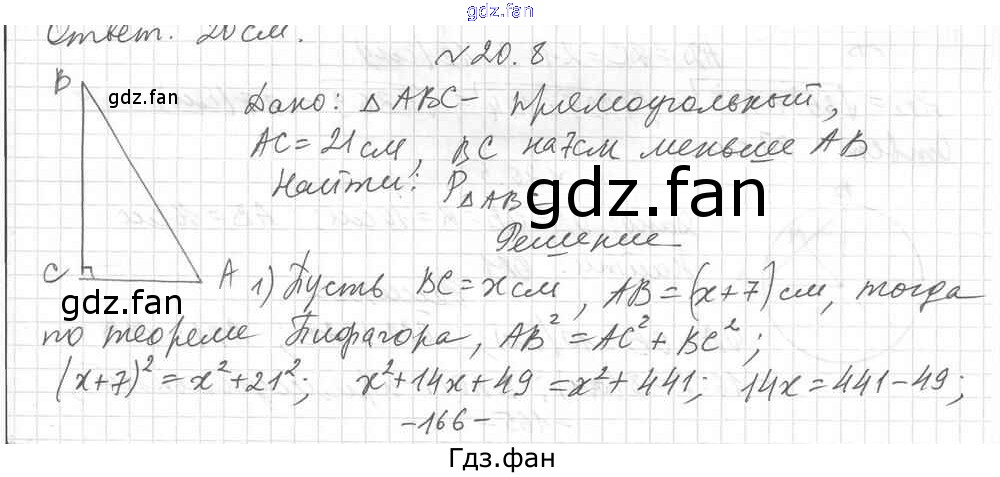 gdz.fan
Ответ. 20 см.
№20.8
B
gdz.fan
Дано: △ABC – прямоугольный,
AC = 21 см, BC на 7 см меньше AB
Найти: P△ABC
gdz.fan
Решение
C A
gdz.fan
1) Пусть BC = x см, AB = (x+7) см, тогда
по теореме Пифагора, AB² = AC² + BC²;
(x+7)² = x² + 21²; x² + 14x + 49 = x² + 441; 14x = 441 – 49;
–166–
Гдз.фан